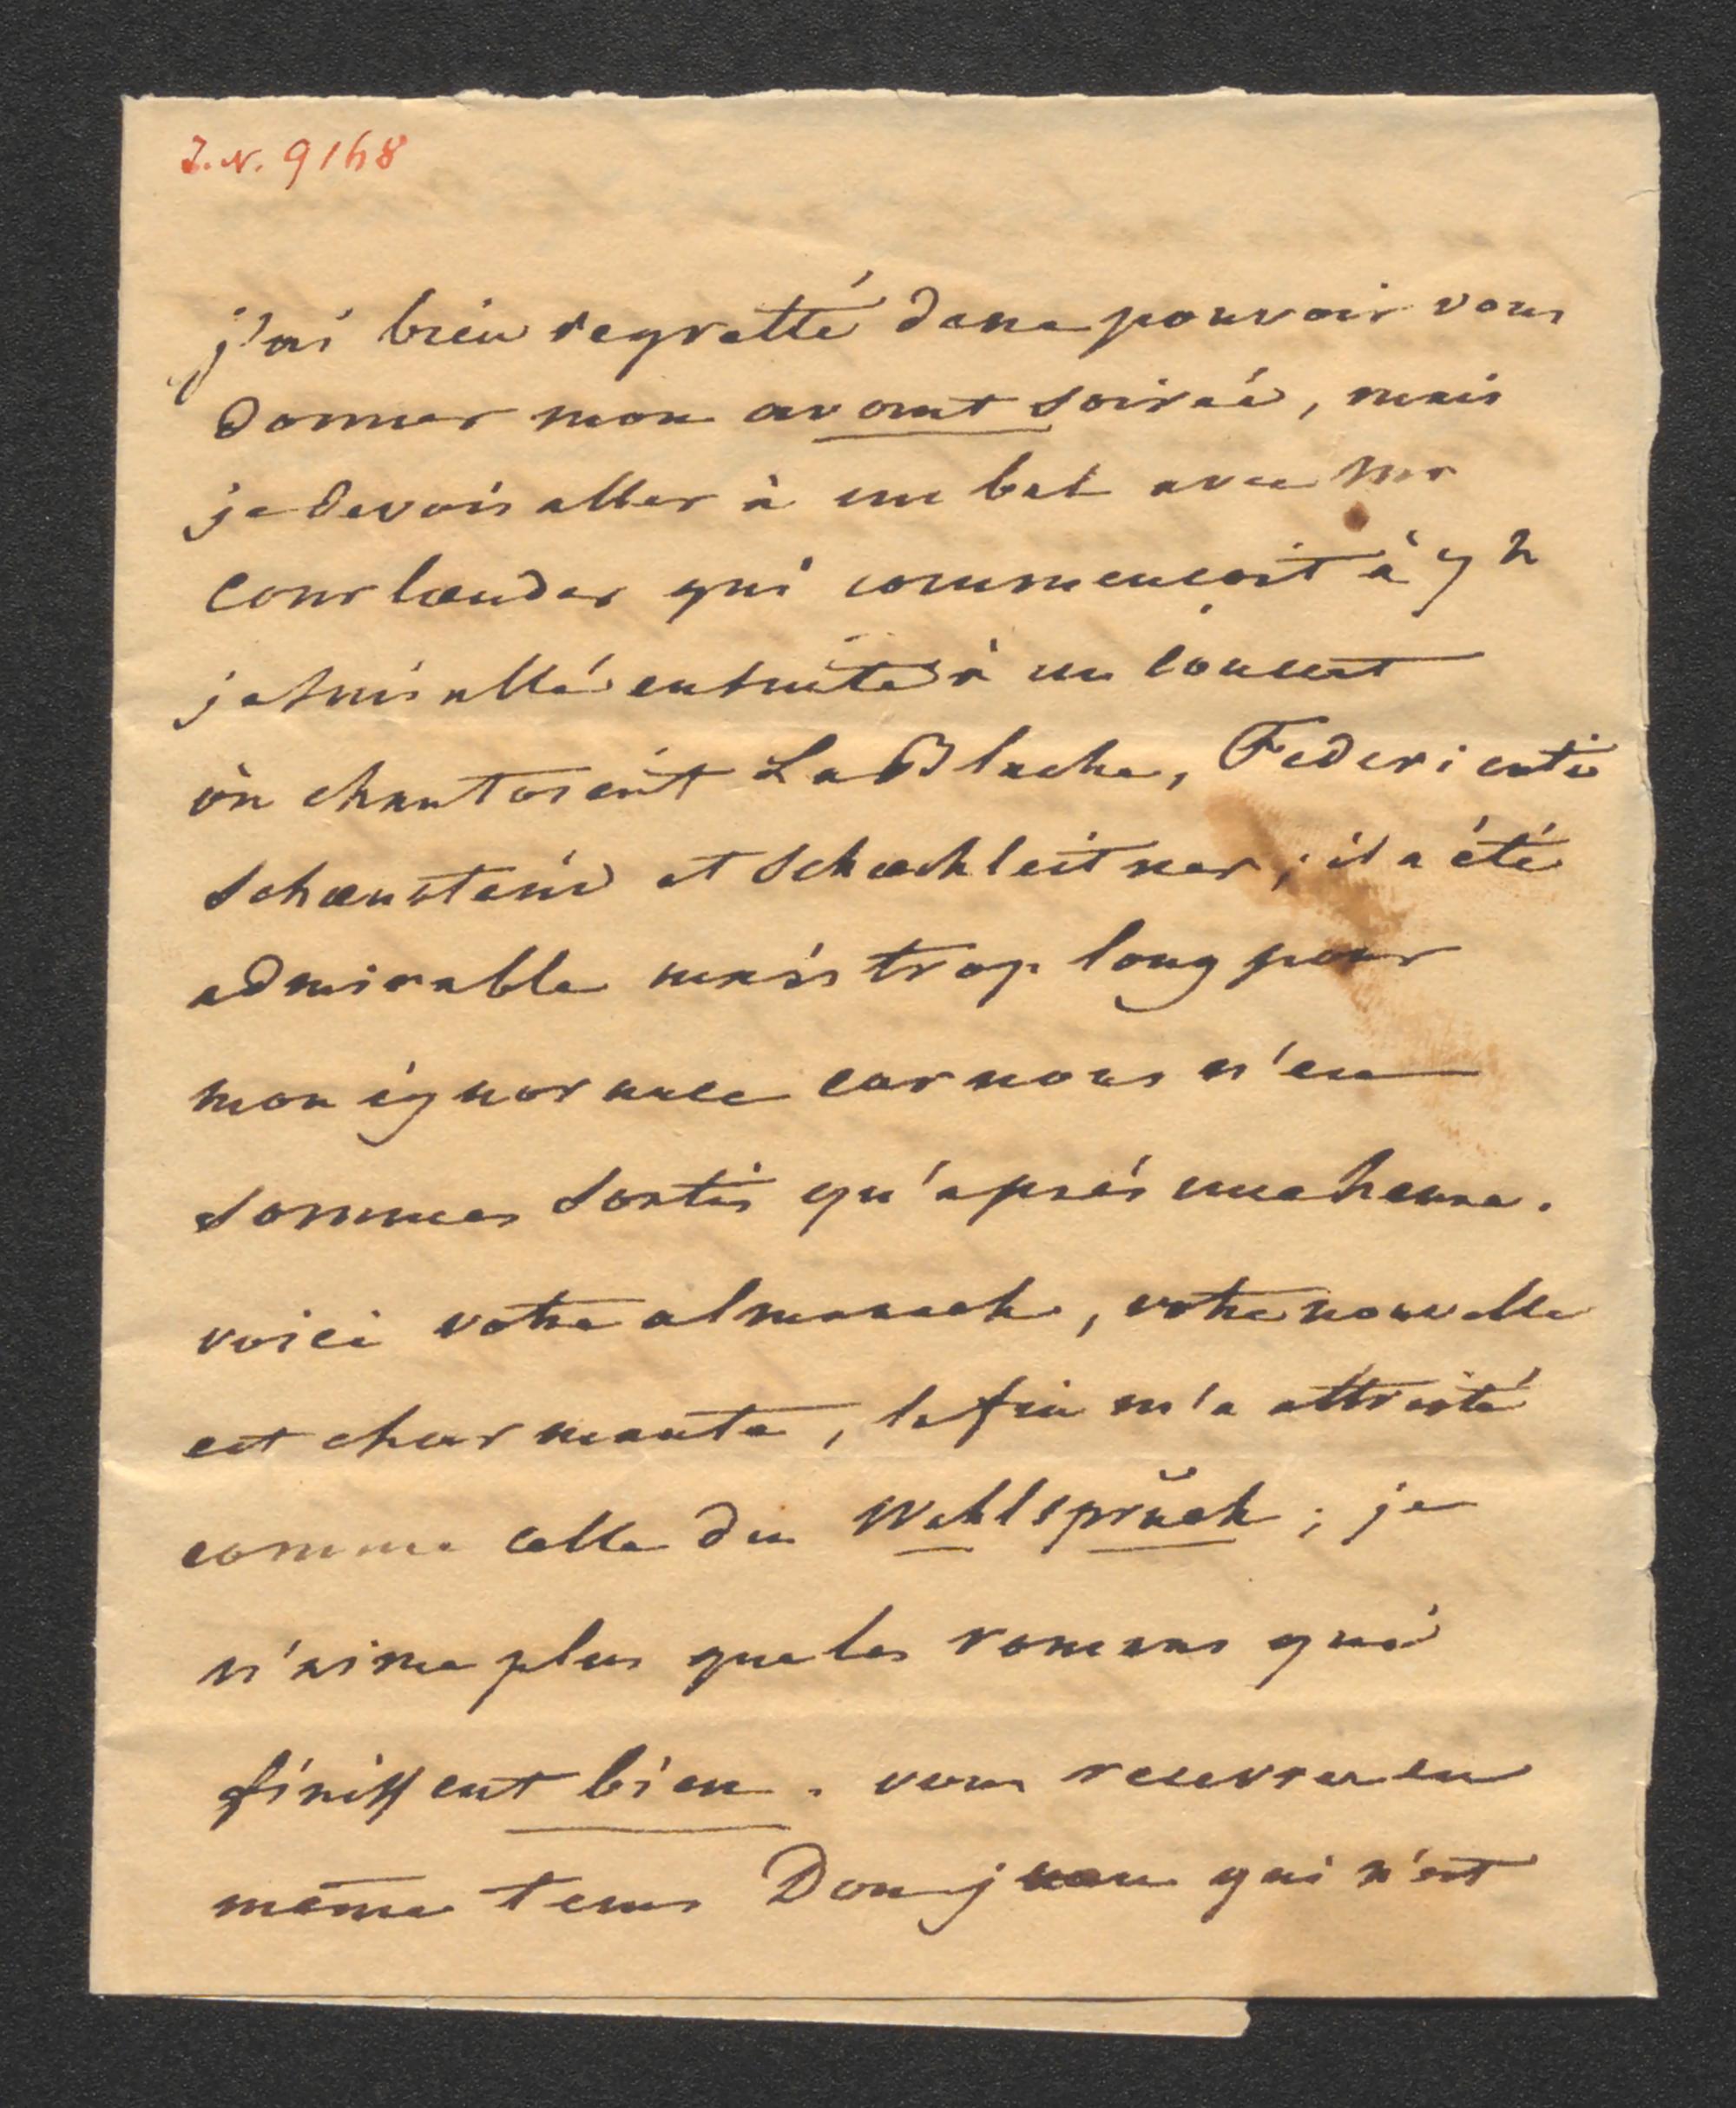 J. N. 9168
j'ai bien regretté de ne pouvoir vous
donner mon avant soirée, mais
je devois aller à un bal avec Mr
Courlænder qui commençoit à 7 h
je suis allé ensuite à un concert
òu chantoient La Blache, Federici etc
Schœnstein et Schœchleitner; il a été
admirable mais trop long pour
mon ignorance car nous n'en
sommes sortis qu'après une heure.
voici votre almanach, votre nouvelle
est charmante, la fin m'a attristé
comme celle du Wahlsprŭch; je
n'aime plus que les romans qui
finissent bien. vous recevrez en
même tems Don juan qui n'est